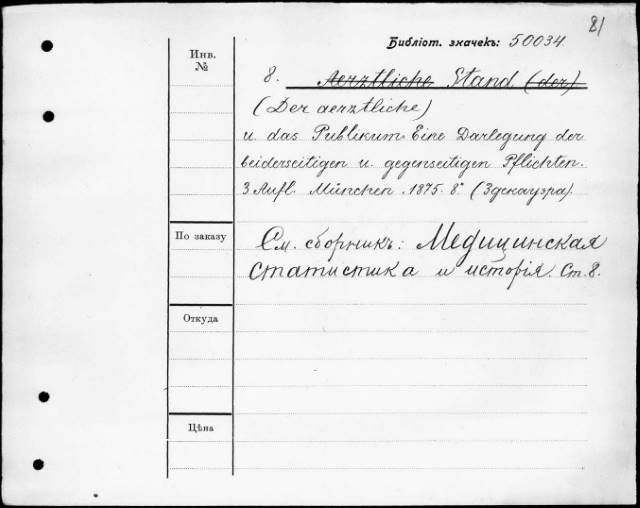 81
Библіот. значекъ: 50034.
Инв. №
8. Aerztliche Stand (der)
(Der aerztliche)
u. das Publikum. Eine Darlegung der
beiderseitigen u. gegenseitigen Pflichten.
3 Aufl. München. 1875. 8° (Здекауэра)
По заказу
См. сборникъ: Медицинская
статистика и исторія. Ст. 8.
Откуда
Цѣна